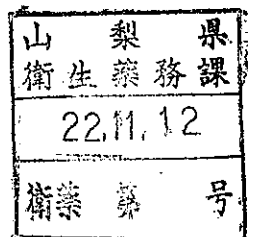 山梨県
衛生薬務課
22.11.12
衛薬第 号